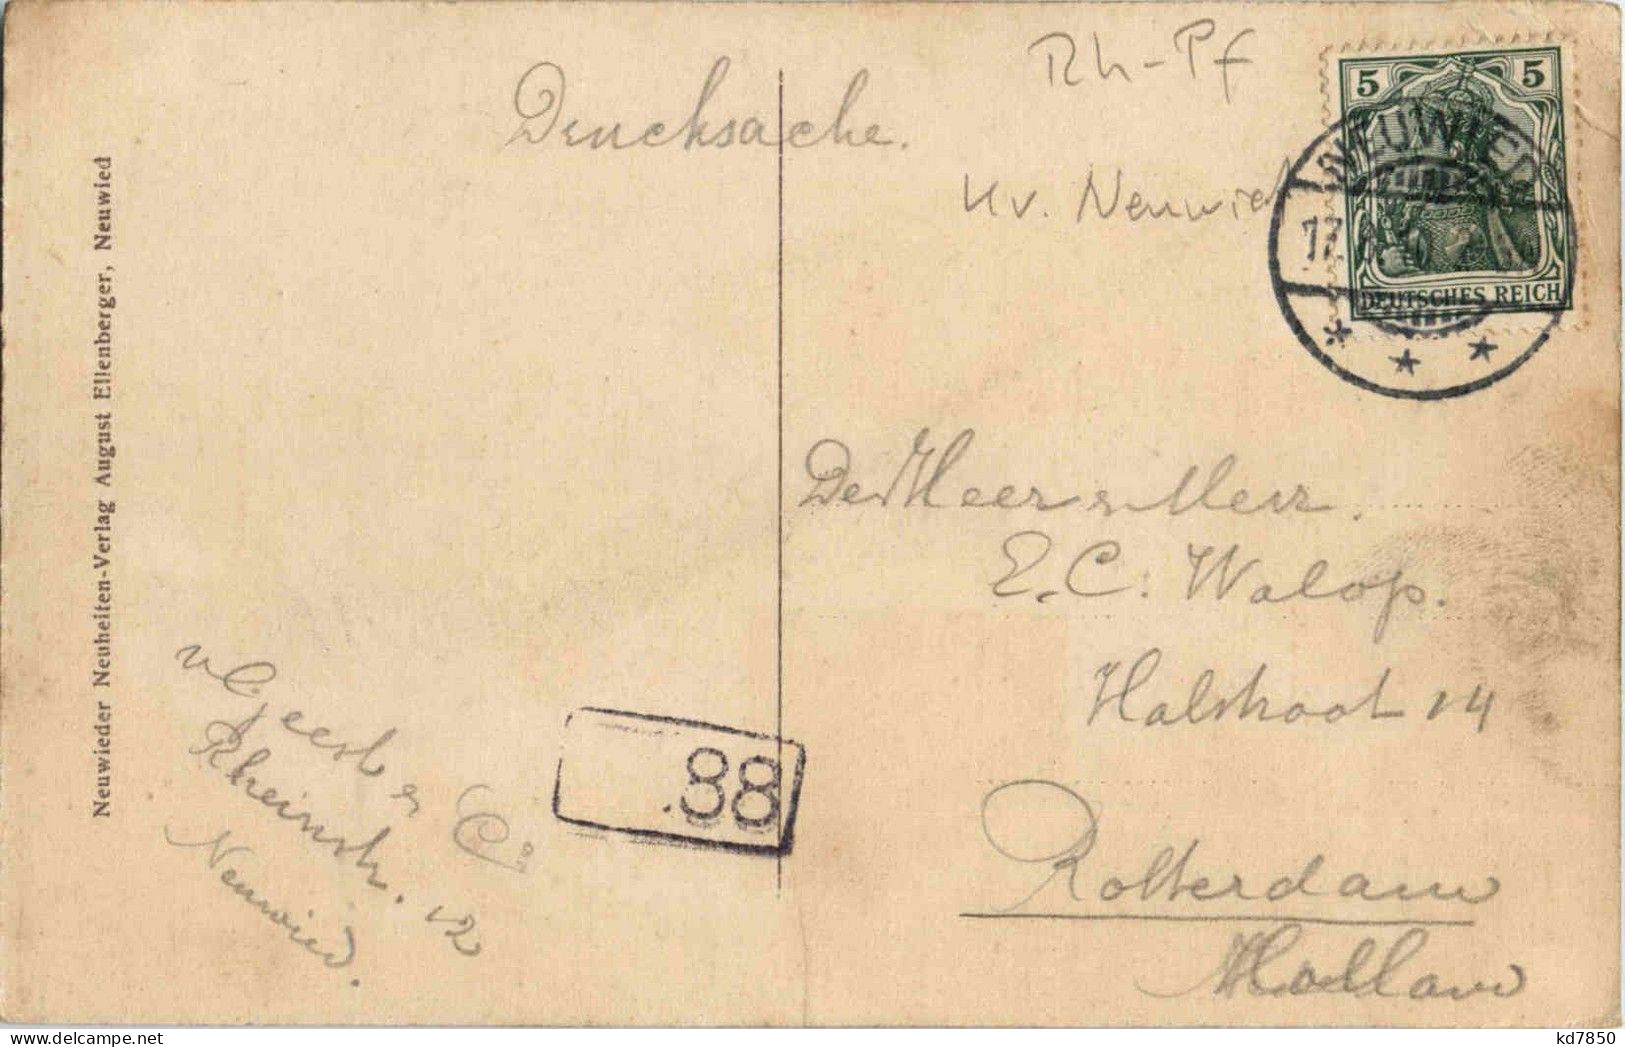 Rh-Pf
Drucksache.
Kv. Neuwied
5 5
DEUTSCHES REICH
NEUWIED
Neuwieder Neuheiten-Verlag August Ellenberger, Neuwied
De Heer & Mevr.
E.C. Walop.
Halstraat 14
Rotterdam
Holland
v Geest & C.
Rheinstr. 12
Neuwied.
88
kd7850